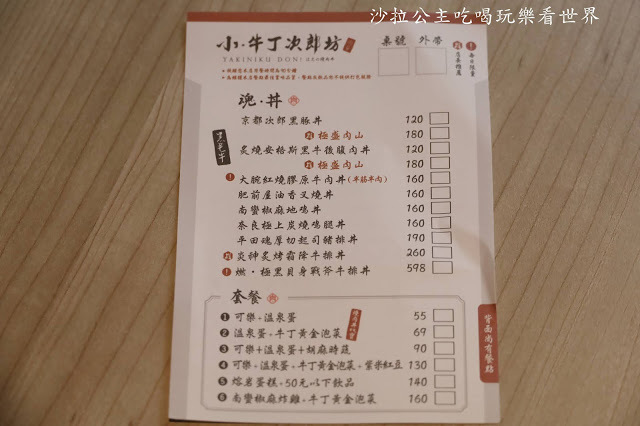 沙拉公主吃喝玩樂看世界
小牛丁次郎坊
YAKINIKU DON!
桌號 外帶
魂・丼
京都次郎黑豚丼 120
極盛肉山 180
炙燒安格斯黑牛後腹肉丼 120
極盛肉山 180
大腕紅燒膠原牛肉丼(半筋半肉) 160
肥前屋油香叉燒丼 160
南蠻椒麻地鳴丼 160
奈良極上炭燒鳴腿丼 160
平田魂厚切起司豬排丼 190
炎神炙烤霜降牛排丼 260
燃・極黑貝身戰斧牛排丼 598
套餐
1 可樂+溫泉蛋 55
2 溫泉蛋+牛丁黃金泡菜 69
3 可樂+溫泉蛋+胡麻時蔬 90
4 可樂+溫泉蛋+牛丁黃金泡菜+紫米紅豆 130
5 熔岩蛋糕+50元以下飲品 140
6 南蠻椒麻炸雞+牛丁黃金泡菜 160
背面尚有餐點